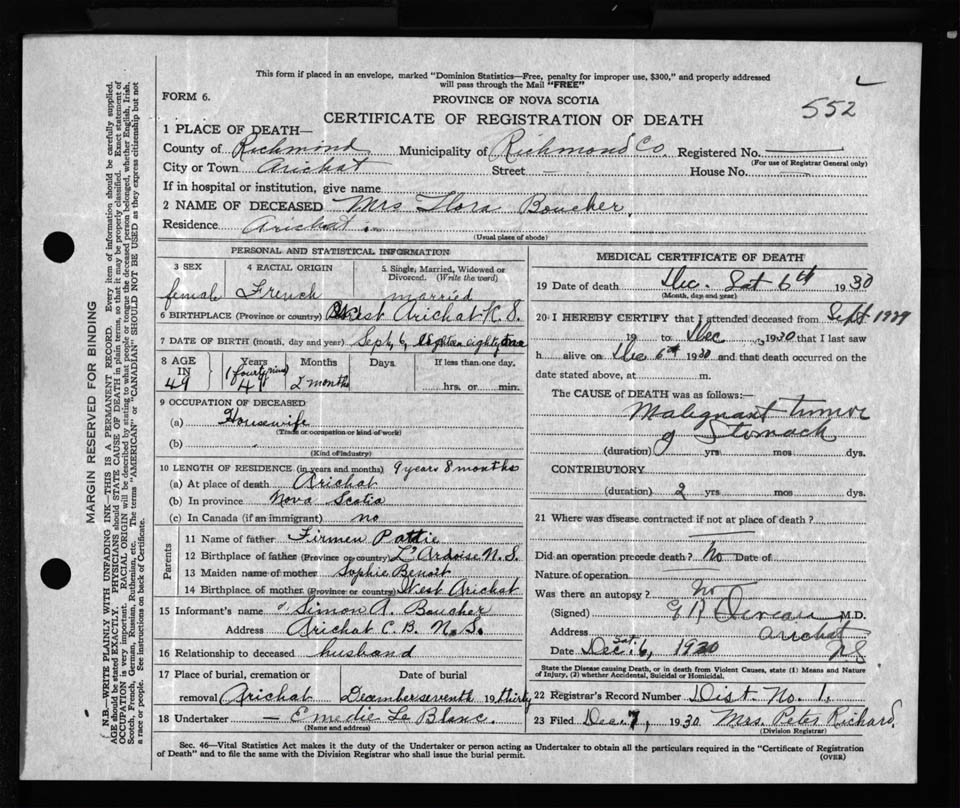 This form if placed in an envelope, marked "Dominion Statistics—Free, penalty for improper use, $300," and properly addressed
will pass through the Mail "FREE"
552
FORM 6.
PROVINCE OF NOVA SCOTIA
CERTIFICATE OF REGISTRATION OF DEATH
1 PLACE OF DEATH—
County of Richmond Municipality of Richmond Co. Registered No.
(For use of Registrar General only)
City or Town Arichat Street — House No. —
If in hospital or institution, give name
2 NAME OF DECEASED Mrs Flora Boucher
Residence Arichat
(Usual place of abode)
MARGIN RESERVED FOR BINDING
N.B.—WRITE PLAINLY WITH UNFADING INK—THIS IS A PERMANENT RECORD. Every item of information should be carefully supplied.
AGE should be stated EXACTLY. PHYSICIANS should STATE CAUSE OF DEATH in plain terms, so that it may be properly classified. Exact statement of
OCCUPATION is very important. RACIAL ORIGIN will be described by stating to what people or tongue the deceased person belonged, whether English, Irish,
Scotch, French, German, Russian, Ruthenian, etc. The terms "AMERICAN" or "CANADIAN" SHOULD NOT BE USED as they express citizenship but not
a race or people. See instructions on back of Certificate.
PERSONAL AND STATISTICAL INFORMATION
3 SEX 4 RACIAL ORIGIN 5 Single, Married, Widowed or
Divorced. (Write the word)
female French married
6 BIRTHPLACE (Province or country) West Arichat N. S.
7 DATE OF BIRTH (month, day and year) Sept, 6, eighteen eighty
8 AGE IN Years Months Days If less than one day,
49 (forty nine) 2 months hrs. or min.
9 OCCUPATION OF DECEASED
(a) Housewife
(Trade or occupation or kind of work)
(b)
(Kind of industry)
10 LENGTH OF RESIDENCE (in years and months) 9 years 8 months
(a) At place of death Arichat
(b) In province Nova Scotia
(c) In Canada (if an immigrant) no
Parents
11 Name of father Firmen Pattie
12 Birthplace of father (Province or country) L'Ardoise N. S.
13 Maiden name of mother Sophie Benoit
14 Birthplace of mother (Province or country) West Arichat
15 Informant's name Simon A. Boucher
Address Arichat C.B. N.S.
16 Relationship to deceased husband
17 Place of burial, cremation or Date of burial
removal Arichat December seventh 19thirty
18 Undertaker — Emedie Le Blanc.
(Name and address)
MEDICAL CERTIFICATE OF DEATH
19 Date of death Dec. Sat 6th 1930
(Month, day and year)
20 I HEREBY CERTIFY that I attended deceased from Sept 1929
19 to Dec 1930 that I last saw
h alive on Dec 6th 1930 and that death occurred on the
date stated above, at m.
The CAUSE of DEATH was as follows:—
Malignant tumor
of Stomach
(duration) yrs mos dys.
CONTRIBUTORY
(duration) 2 yrs mos dys.
21 Where was disease contracted if not at place of death?
Did an operation precede death? No Date of
Nature of operation
Was there an autopsy? No
(Signed) M.D.
Address Arichat
NS
Date Dec Sat 6, 1930
State the Disease causing Death, or in death from Violent Causes, state (1) Means and Nature
of Injury, (2) whether Accidental, Suicidal or Homicidal.
22 Registrar's Record Number Dist. No. 1.
23 Filed Dec 7, 1930 Mrs. Peter Richard.
(Division Registrar)
Sec. 46—Vital Statistics Act makes it the duty of the Undertaker or person acting as Undertaker to obtain all the particulars required in the "Certificate of Registration
of Death" and to file the same with the Division Registrar who shall issue the burial permit.
(OVER)